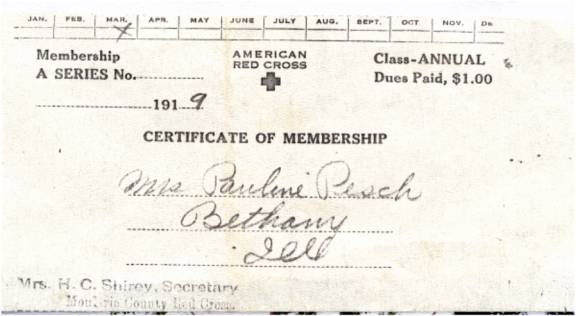 JAN. FEB. MAR. APR. MAY JUNE JULY AUG. SEPT. OCT NOV. De
X
Membership AMERICAN Class-ANNUAL
A SERIES No. RED CROSS Dues Paid, $1.00
1919
CERTIFICATE OF MEMBERSHIP
Mrs Pauline Pesch
Bethany
Ill
Mrs. H. C. Shirey, Secretary
Moultrie County Red Cross.